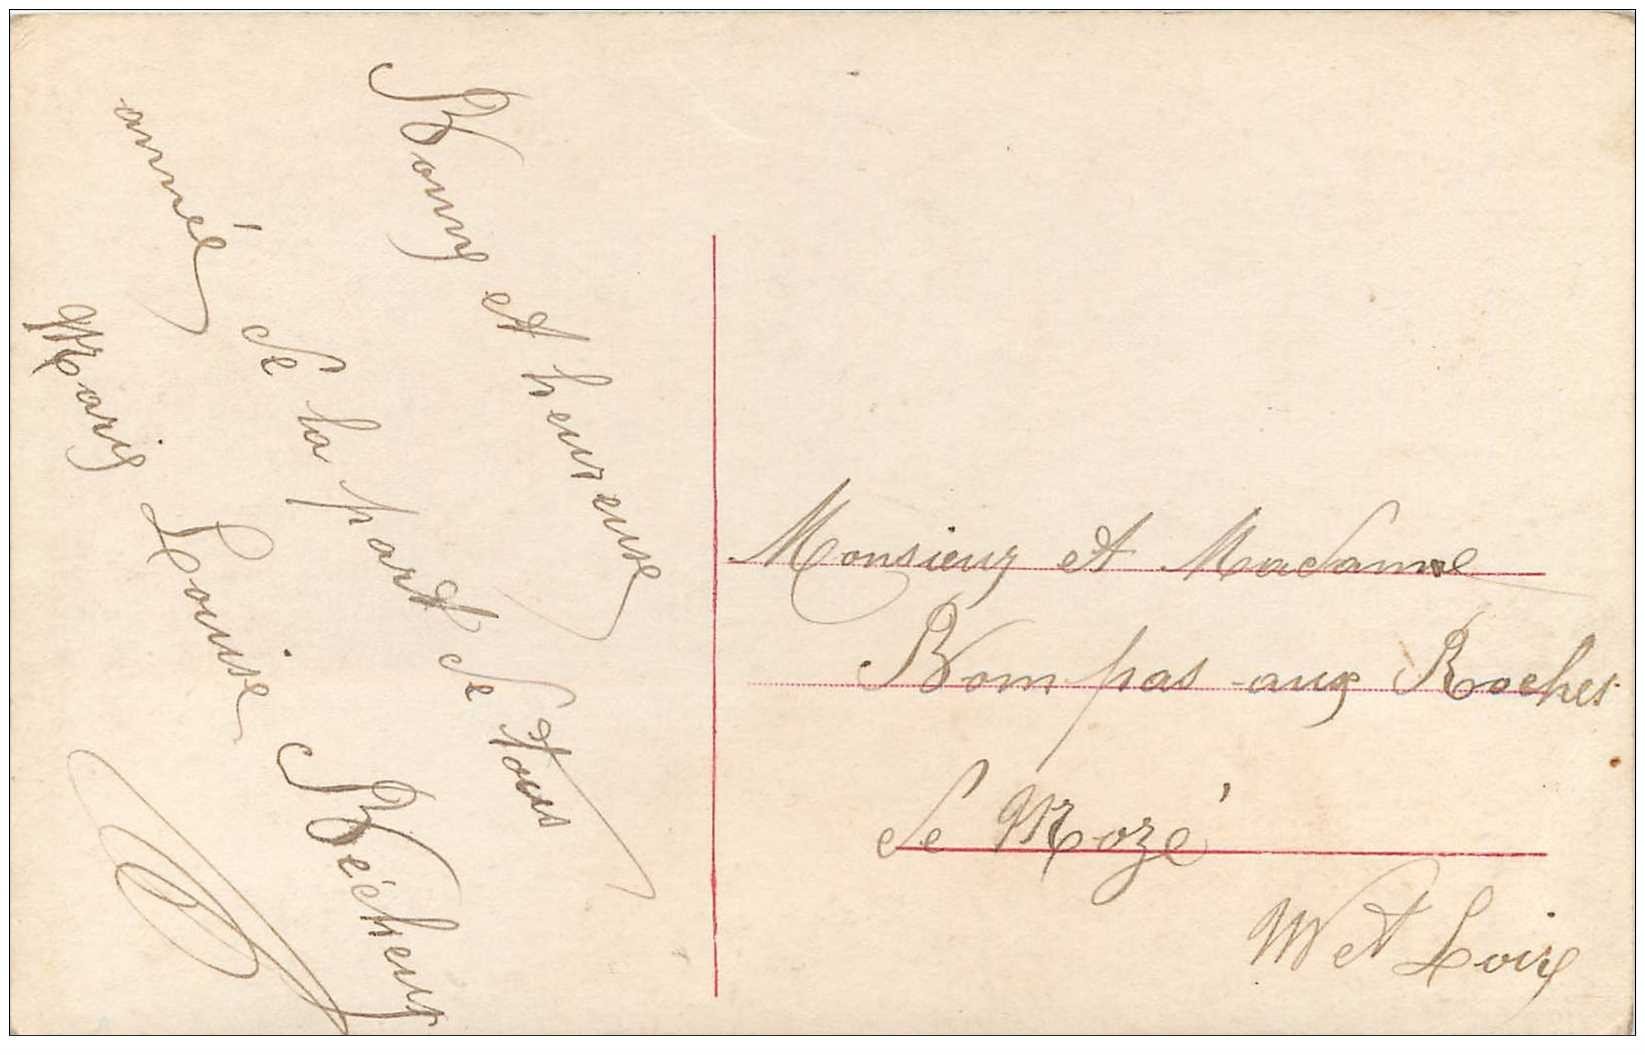 Bonne et heureuse
année de la part de tous
Marie Louise Bécheux
Monsieur et Madame
Bompas aux Roches
de Mozé
M et Loire